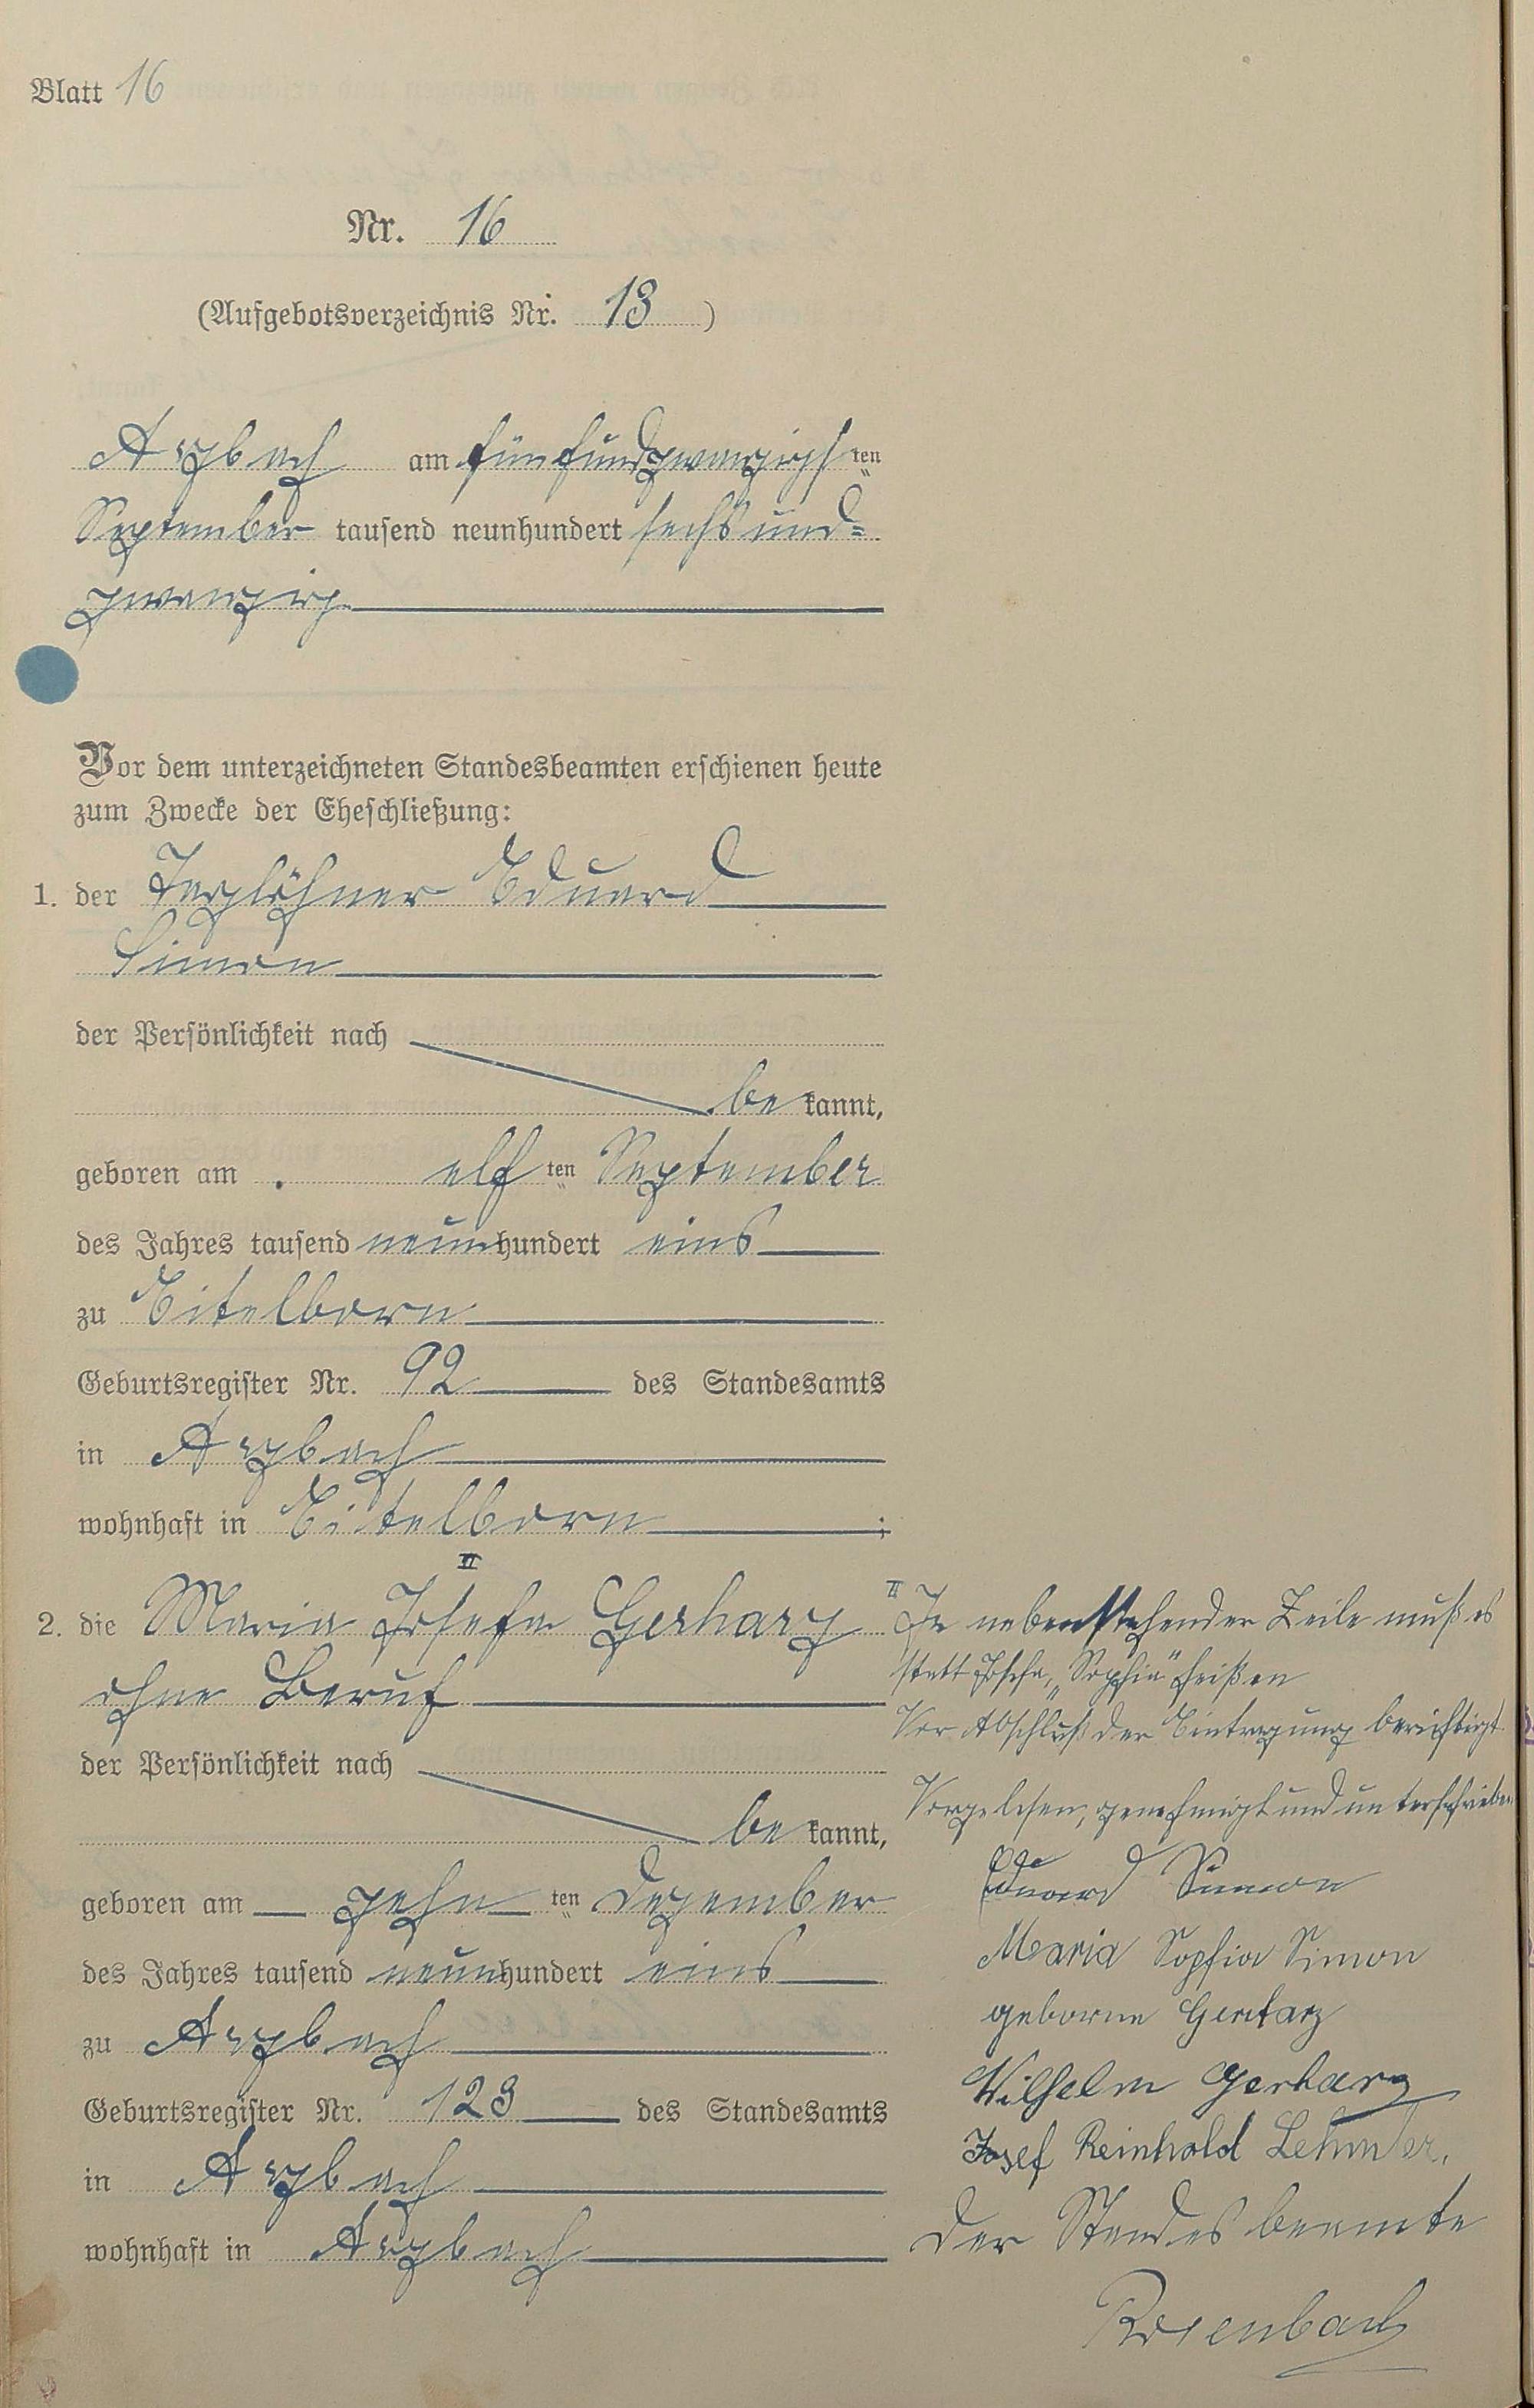 Blatt 16
Nr. 16
(Aufgebotsverzeichnis Nr. 13)
Arzbach am fünfundzwanzigsten
September tausend neunhundert sechsund=
zwanzig
Vor dem unterzeichneten Standesbeamten erschienen heute
zum Zwecke der Eheschließung:
1. der Taglöhner Eduard
Simon
der Persönlichkeit nach
bekannt,
geboren am elften September
des Jahres tausend neunhundert eins
zu Eitelborn
Geburtsregister Nr. 92 des Standesamts
in Arzbach
wohnhaft in Eitelborn;
II
2. die Maria Josefa Gerharz
ohne Beruf
der Persönlichkeit nach
bekannt,
geboren am zehnten Dezember
des Jahres tausend neunhundert eins
zu Arzbach
Geburtsregister Nr. 123 des Standesamts
in Arzbach
wohnhaft in Arzbach
II In nebenstehender Zeile muß es
statt Josefa, „Sophia" heißen
Vor Abschluß der Eintragung berichtigt
Vorgelesen, genehmigt und unterschrieben
Eduard Simon
Maria Sophia Simon
geborne Gerharz
Wilhelm Gerharz
Josef Reinhold
Der Standesbeamte
Rosenbach